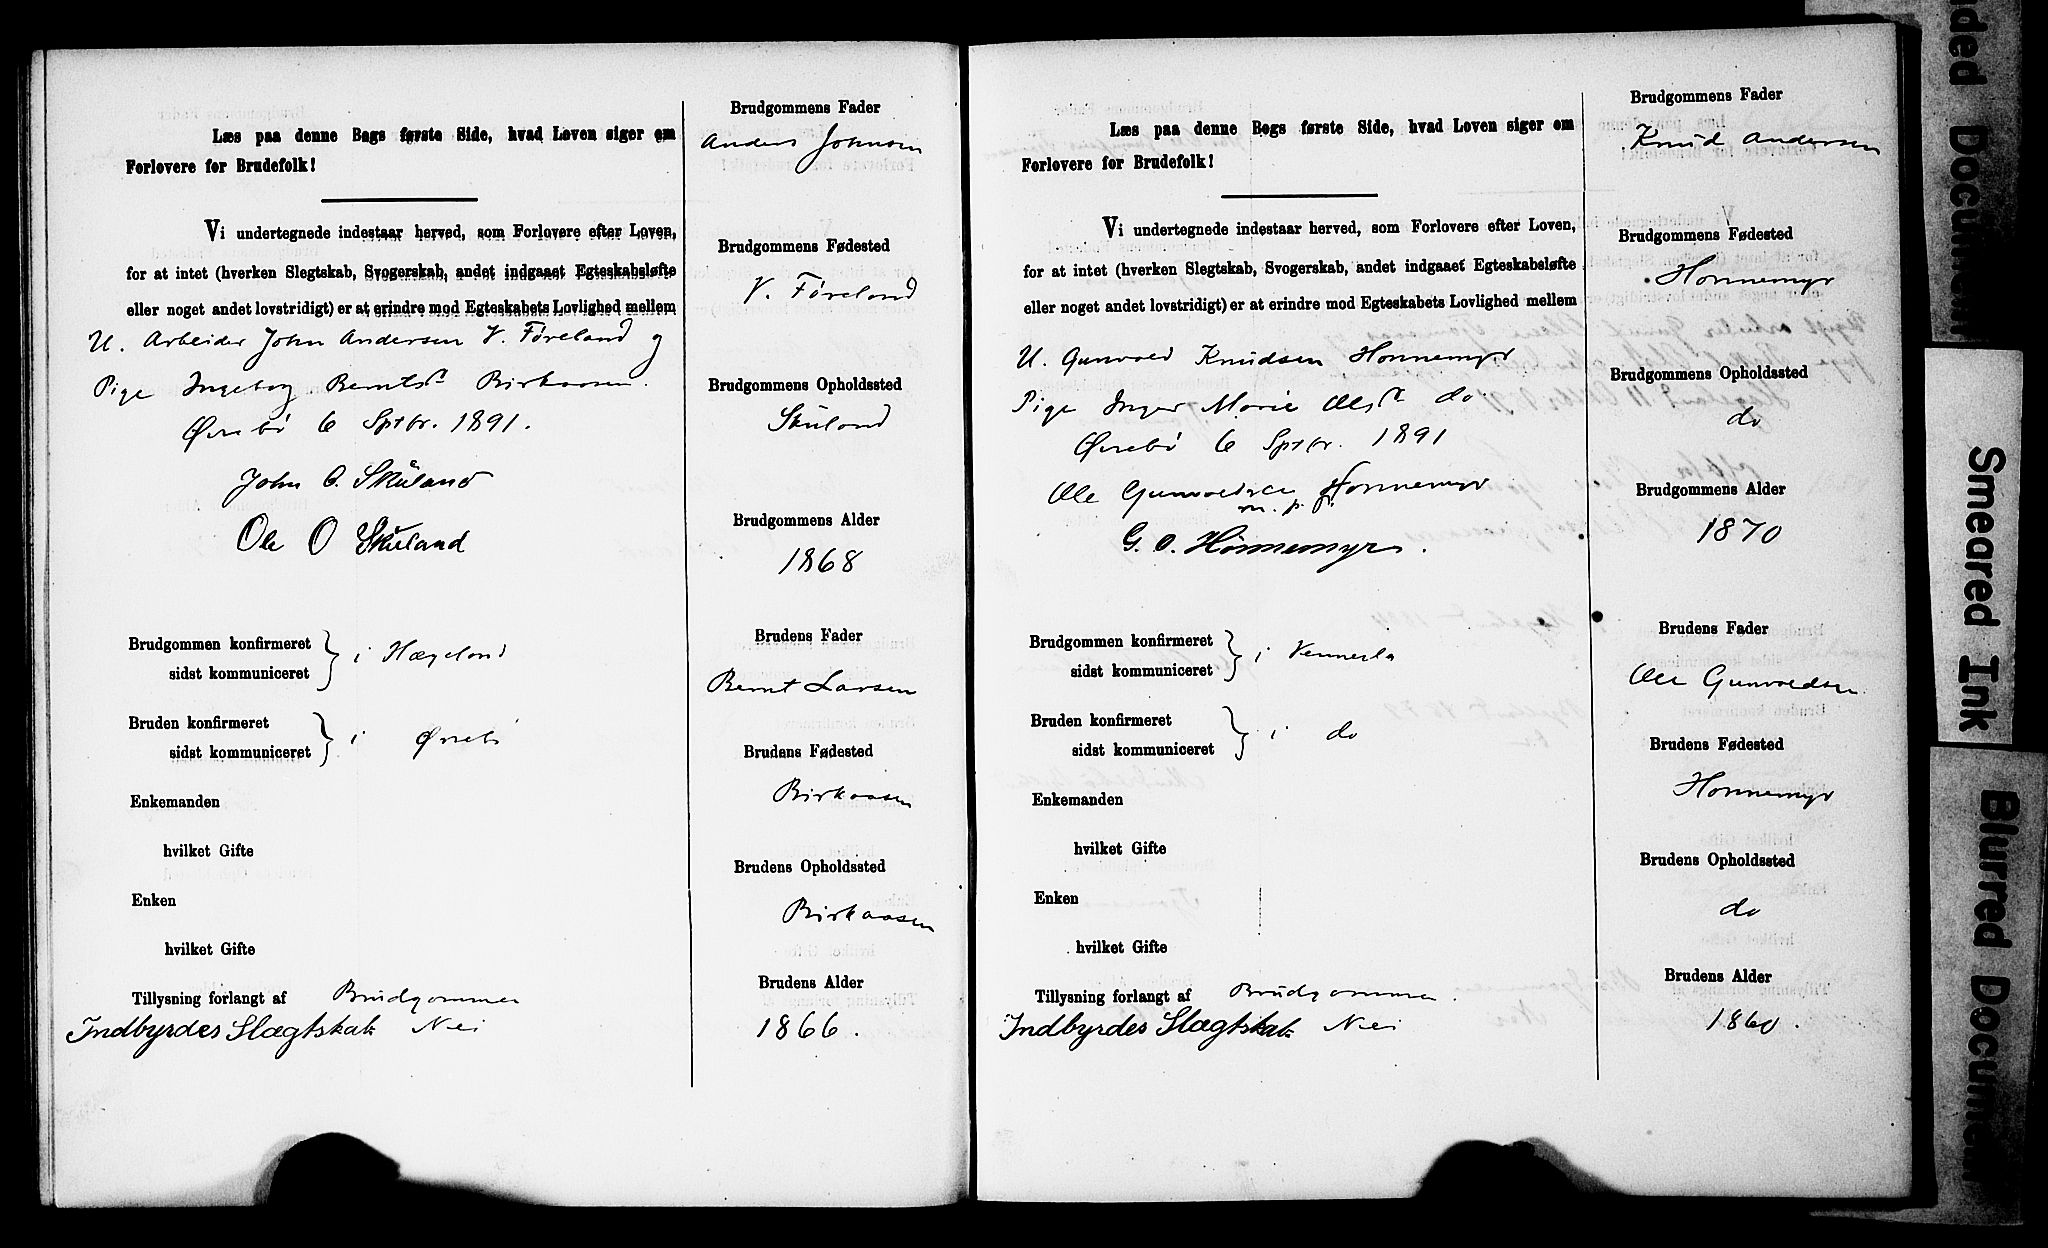 Læs paa denne Bogs første Side, hvad Loven siger om
Forlovere for Brudefolk!
Vi undertegnede indestaar herved, som Forlovere efter Loven,
for at intet (hverken Slegtskab, Svogerskab, andet indgaaet Egteskabsløfte
eller noget andet lovstridigt) er at erindre mod Egteskabets Lovlighed mellem
U. Arbeider John Andersen V. Føreland og
Pige Ingeborg Berntsd. Birkaasen.
Øvrebø 6 Sptbr. 1891.
John O. Skuland
Ole O Skuland
Brudgommen konfirmeret
sidst kommuniceret } i Hægeland
Bruden konfirmeret
sidst kommuniceret } i Øvrebø
Enkemanden
hvilket Gifte
Enken
hvilket Gifte
Tillysning forlangt af Brudgommen
Indbyrdes Slægtskab Nei
Brudgommens Fader
Anders Johnsen
Brudgommens Fødested
V. Føreland
Brudgommens Opholdssted
Skuland
Brudgommens Alder
1868
Brudens Fader
Bernt Larsen
Brudens Fødested
Birkaasen
Brudens Opholdssted
Birkaasen
Brudens Alder
1866.
Læs paa denne Bogs første Side, hvad Loven siger om
Forlovere for Brudefolk!
Vi undertegnede indestaar herved, som Forlovere efter Loven,
for at intet (hverken Slegtskab, Svogerskab, andet indgaaet Egteskabsløfte
eller noget andet lovstridigt) er at erindre mod Egteskabets Lovlighed mellem
U. Gunvald Knudsen Honnemyr
Pige Inger Marie Olsd. do
Øvrebø 6 Sptbr. 1891
Ole Gunvaldsen Honnemyr
m. p. P.
G. O. Hønnemyr.
Brudgommen konfirmeret
sidst kommuniceret } i Vennesla
Bruden konfirmeret
sidst kommuniceret } i do
Enkemanden
hvilket Gifte
Enken
hvilket Gifte
Tillysning forlangt af Brudgommen.
Indbyrdes Slægtskab Nei
Brudgommens Fader
Knud Andersen
Brudgommens Fødested
Honnemyr
Brudgommens Opholdssted
do
Brudgommens Alder
1870
Brudens Fader
Ole Gunvaldsen
Brudens Fødested
Honnemyr
Brudens Opholdssted
do
Brudens Alder
1860.
Smeared Ink
Blurred Documen